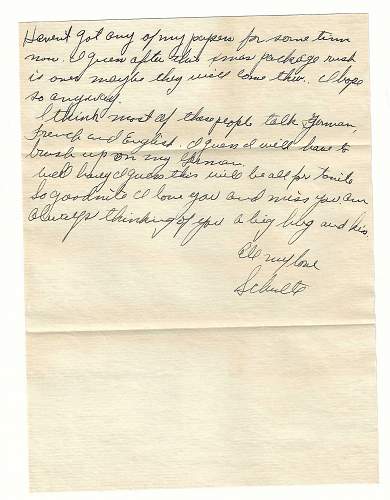 Havent got any of my papers for some time
now. I guess after this xmas package rush
is over maybe they will come thru. I hope
so anyway.
I think most of these people talk German,
French and English. I guess I will have to
brush up on my German.
Well honey I guess this will be all for tonite
So goodnite I love you and miss you am
always thinking of you a big hug and kiss.
All my love
Schultz